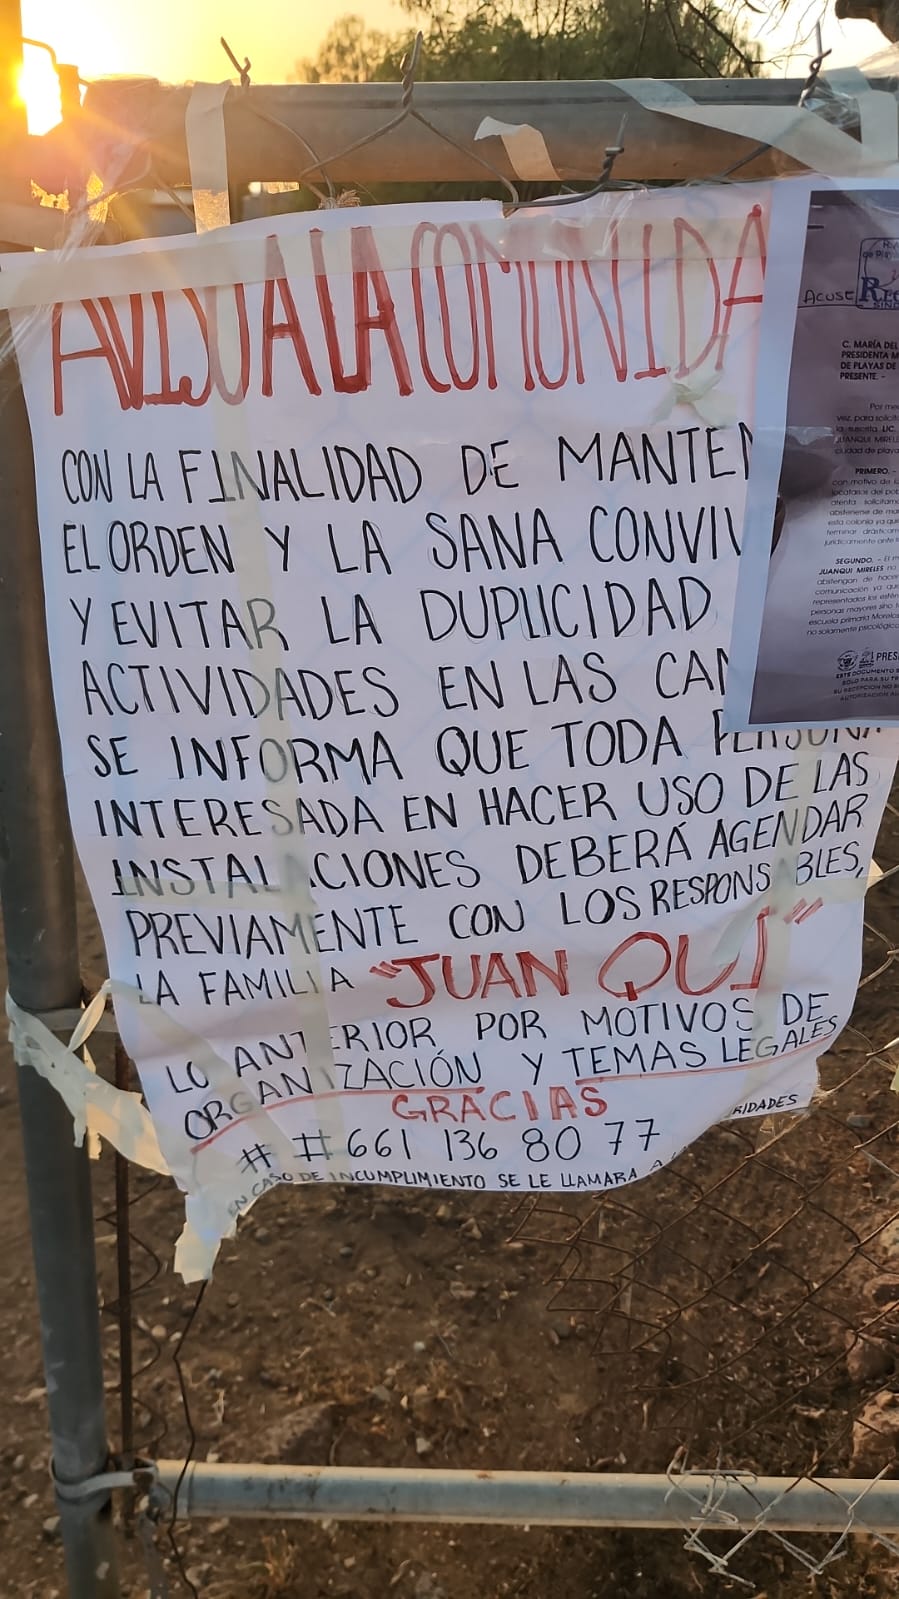 AVISO A LA COMUNIDA
CON LA FINALIDAD DE MANTEN
EL ORDEN Y LA SANA CONVIV
Y EVITAR LA DUPLICIDAD
ACTIVIDADES EN LAS CAN
SE INFORMA QUE TODA PERSONA
INTERESADA EN HACER USO DE LAS
INSTALACIONES DEBERÁ AGENDAR
PREVIAMENTE CON LOS RESPONSABLES,
LA FAMILIA "JUAN QUI"
LO ANTERIOR POR MOTIVOS DE
ORGANIZACIÓN Y TEMAS LEGALES
GRACIAS
# # 661 136 80 77
EN CASO DE INCUMPLIMIENTO SE LE LLAMARA A RIDADES
ACUSE
C. MARÍA DEL
PRESIDENTA M
DE PLAYAS DE
PRESENTE. -
Por me
vez, para solicit
la suscrita LIC.
JUANQUI MIRELE
ciudad de playa
PRIMERO. -
con motivo de l
locatarios del pob
atenta solicitam
abstenerse de ma
esta colonia ya qu
terminar drásticam
jurídicamente ante
SEGUNDO. - El m
JUANQUI MIRELES no
abstengan de hacer
comunicación ya que
representados los
personas mayores sino
escuela primaria Morelos
no solamente psicológico
PRES
ESTE DOCUMENTO
SOLO PARA SU TR
SU RECEPCIÓN NO
AUTORIZACIÓN AL